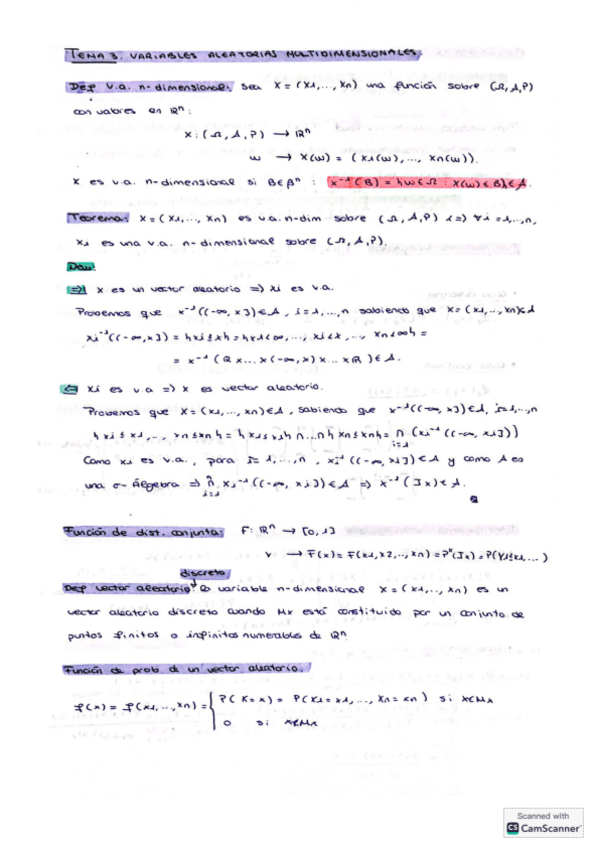 TEMA 3. VARIABLES ALEATORIAS MULTIDIMENSIONALES.
Def v.a. n-dimensional: Sea X = (X1,..., Xn) una función sobre (Ω, A, P)
con valores en ℝⁿ:
X: (Ω, A, P) → ℝⁿ
ω → X(ω) = (X1(ω), ..., Xn(ω)).
X es v.a. n-dimensional si B∈βⁿ : X⁻¹(B) = {ω∈Ω : X(ω)∈B}∈A.
Teorema: X = (X1, ..., Xn) es v.a. n-dim sobre (Ω, A, P) <=> ∀i = 1,...,n,
Xi es una v.a. n-dimensional sobre (Ω, A, P).
Dem:
=>| X es un vector aleatorio => Xi es v.a.
Probemos que X⁻¹((-∞, x])∈A, i=1,...,n sabiendo que X = (X1,..,Xn)∈A
Xi⁻¹((-∞,x]) = {Xi≤x} = {X1<∞,..., Xi<x, .., Xn<∞} =
= X⁻¹(ℝ x...x (-∞,x) x... xℝ)∈A.
<= Xi es v.a => X es vector aleatorio.
Probemos que X = (X1,..., Xn)∈A, sabiendo que X⁻¹((-∞, x])∈A, i=1,..,n
{X1≤x1,..., Xn≤xn} = {X1≤x1}∩...∩{Xn≤xn} = ∩ᵢ₌₁ (Xi⁻¹((-∞, xi]))
Como Xi es v.a., para i=1,...,n, Xi⁻¹((-∞, xi])∈A y como A es
una σ-álgebra => ∩ⁿᵢ₌₁ Xi⁻¹((-∞, xi])∈A => X⁻¹(Ix)∈A.
Función de dist. conjunta: F: ℝⁿ → [0,1]
x → F(x) = F(x1, x2,..., xn) = Pˣ(Ix) = P(X1≤x1, ...)
discreto
Def vector aleatorio: variable n-dimensional X = (X1,..., Xn) es un
vector aleatorio discreto cuando Mx está constituido por un conjunto de
puntos finitos o infinitos numerables de ℝⁿ
Función de prob. de un vector aleatorio.
f(x) = f(x1,...,xn) = { P(X=x) = P(X1=x1, ..., Xn=xn) si x∈Mx
0 si x∉Mx
Scanned with
CS CamScanner